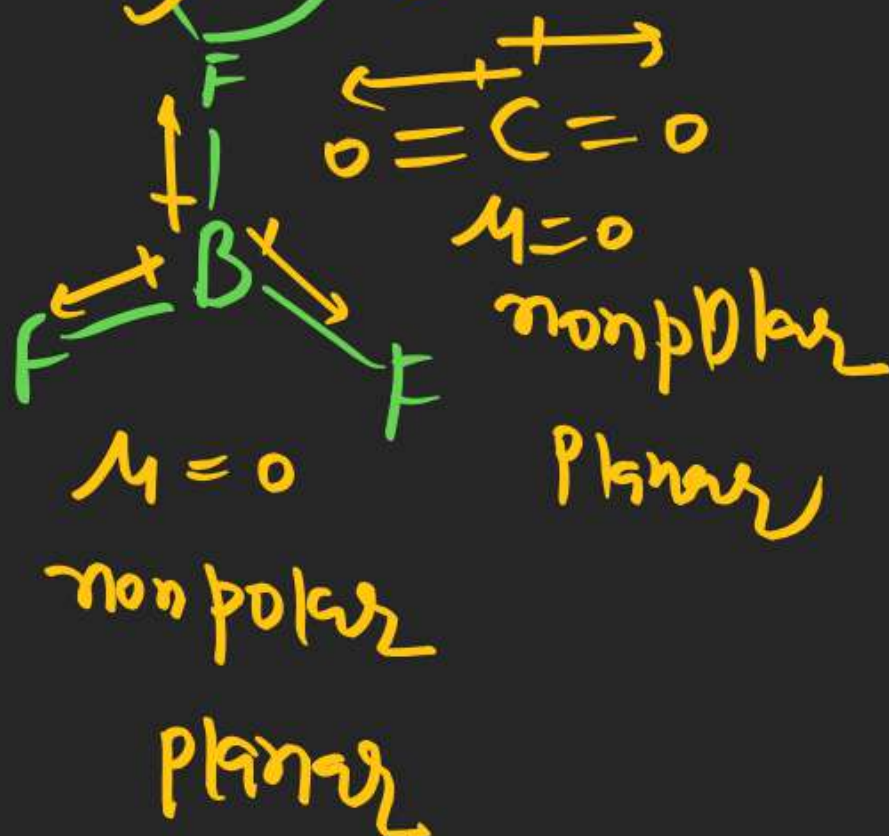 F
O = C = O
B
μ = 0
nonpolar
F
F
planar
μ = 0
nonpolar
planar